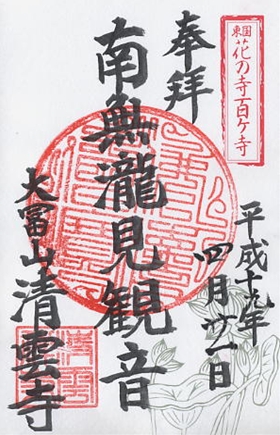 東国花の寺百ケ寺
奉拝
平成十九年
四月廿一日
南無瀧見観音
大富山清雲寺
清雲寺